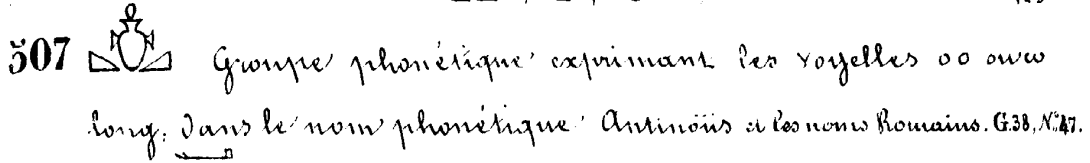 507 Groupe phonétique exprimant les voyelles oo ou ω
long; dans le nom phonétique Antinöüs et les noms Romains. G.38, N.º 47.